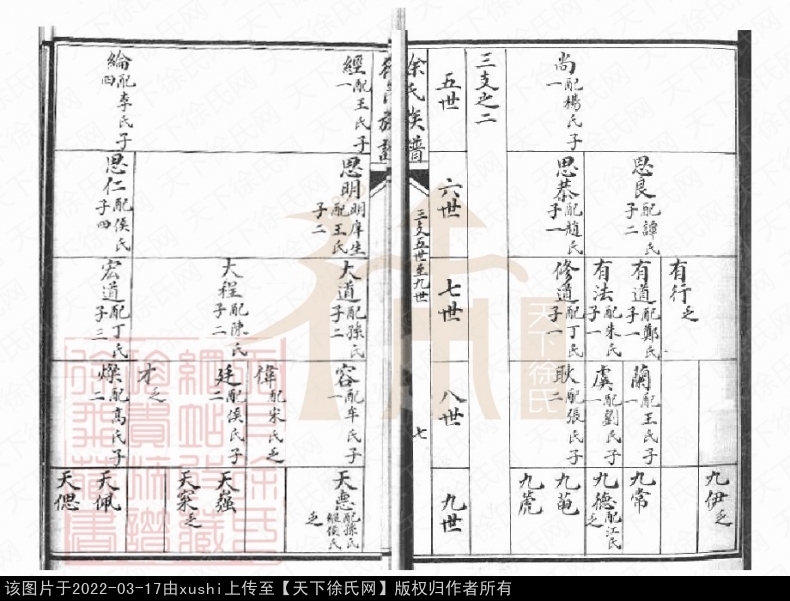 三支之二
五世
尚配楊氏子一
六世
思良配譚氏子二
思恭配趙氏子一
七世
有行乏
有道配鄭氏子一
有法配朱氏子一
修道配丁氏子一
八世
蘭配王氏子一
虞配劉氏子一
耿配張氏子二
九世
九伊乏
九常
九德配江氏乏
九苞
九虎
徐氏族譜
三支五世至九世
七
經配王氏子一
綸配李氏子四
思明明庠生配王氏子二
思仁配侯氏子四
大道配孫氏子二
大程配陳氏子二
宏道配丁氏子三
容配车氏子一
偉配宋氏乏
廷配侯氏子二
才乏
燦配高氏子二
天惠配孫氏繼侯氏乏
天強
天寀乏
天佩
天偲
天下徐氏
该图片于2022-03-17由xushi上传至【天下徐氏网】版权归作者所有